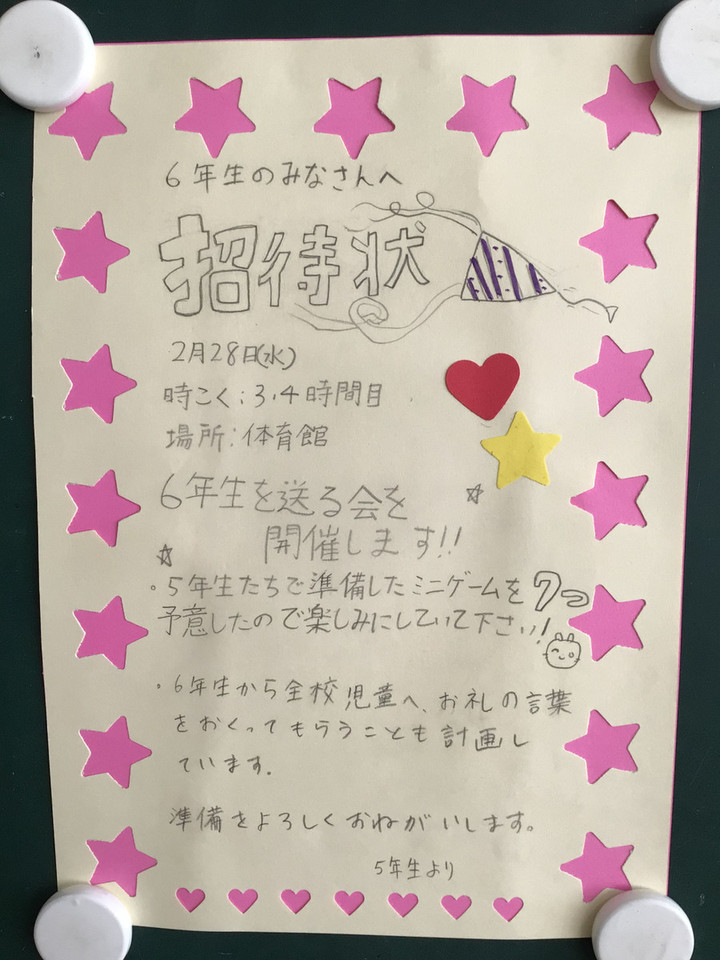 6年生のみなさんへ
招待状
2月28日(水)
時こく:3.4時間目
場所:体育館
6年生を送る会を
開催します!!
・5年生たちで準備したミニゲームを7つ
予意したので楽しみにしていて下さい!
・6年生から全校児童へ、お礼の言葉
をおくってもらうことも計画し
ています.
準備をよろしくおねがいします。
5年生より